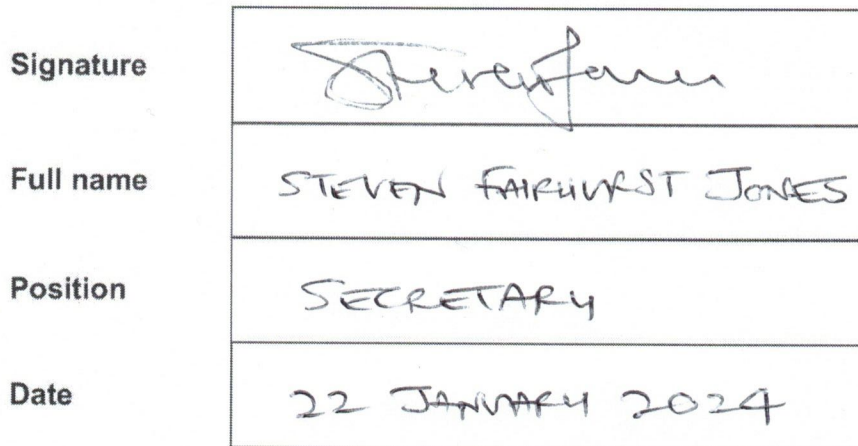 Signature Steven Jones
Full name STEVEN FAIRHURST JONES
Position SECRETARY
Date 22 JANUARY 2024